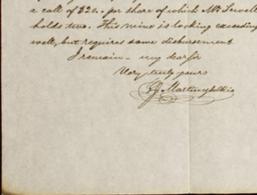 a call of 32c. per share of which Mr Sewell
holds two. This mine is looking exceeding
well, but requires some disbursement
I remain — my dear Sir
Very truly yours